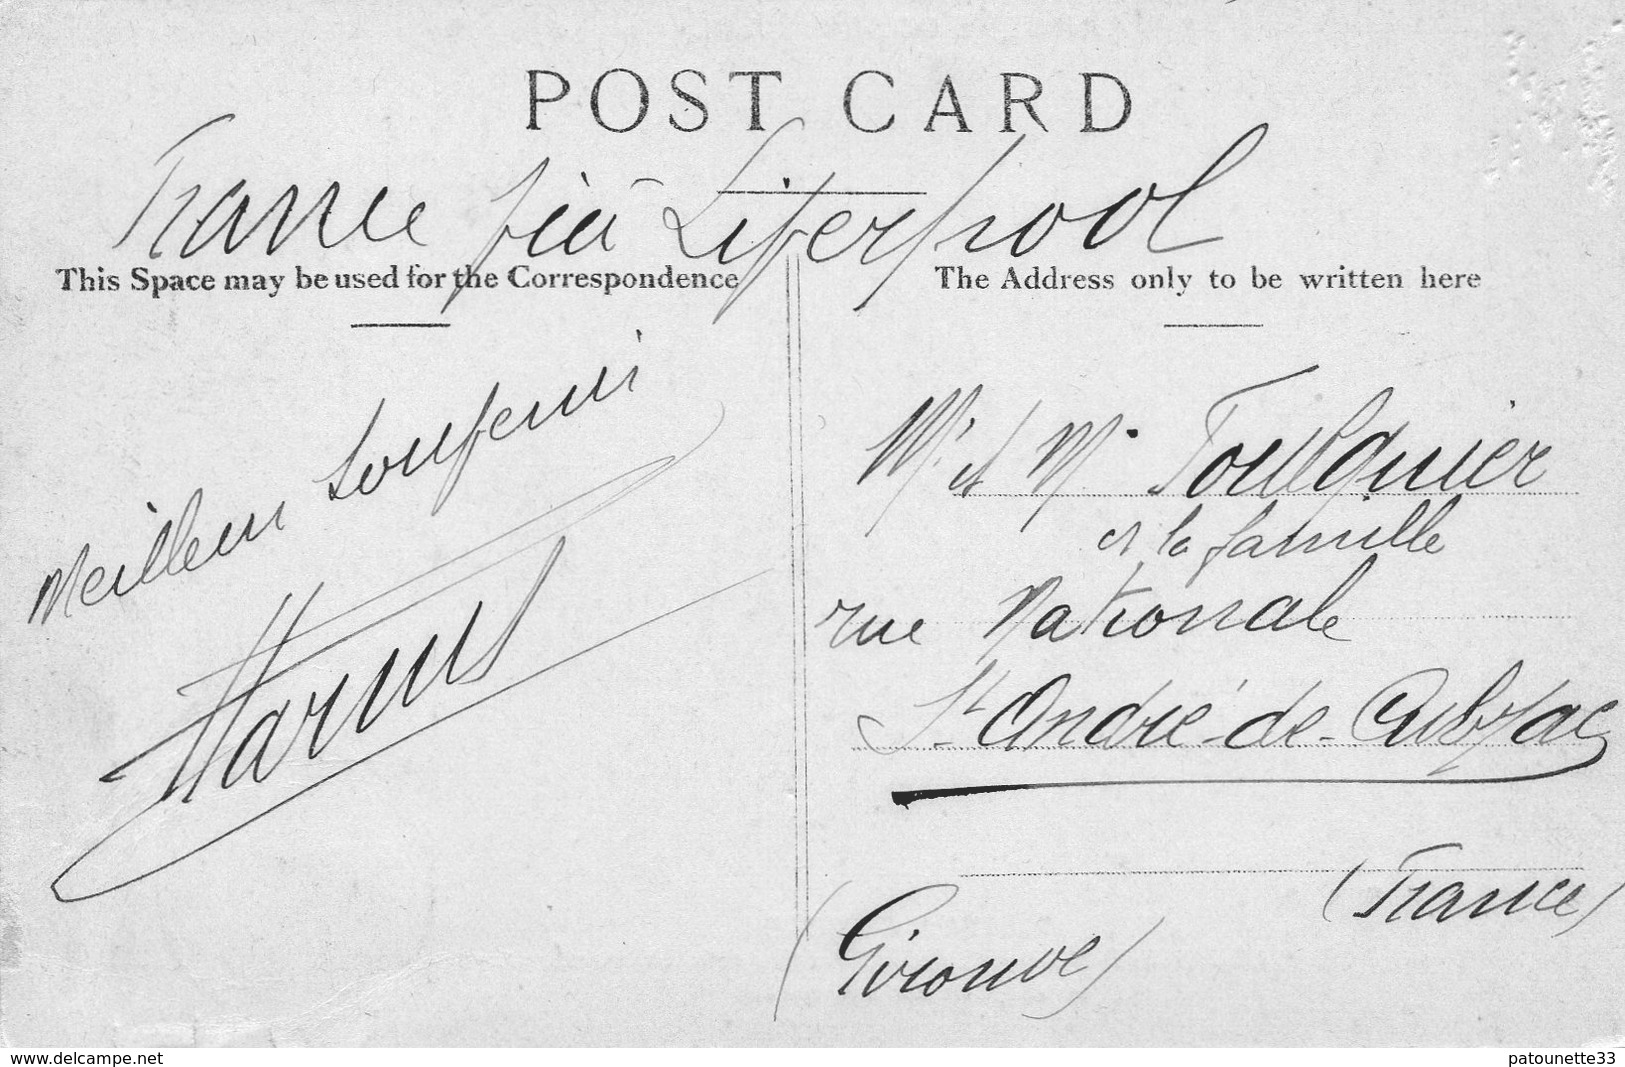 POST CARD
France viâ Liverpool
This Space may be used for the Correspondence
The Address only to be written here
Meilleur Souvenir
Mr et Mme
et la famille
rue Nationale
St André-de-Cubzac
(France)
(Gironde)
www.delcampe.net
patounette33